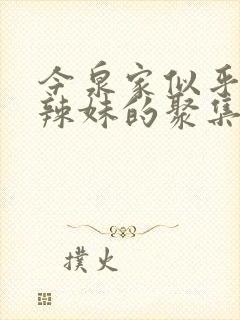 今泉家似乎
辣妹的聚集
撲火